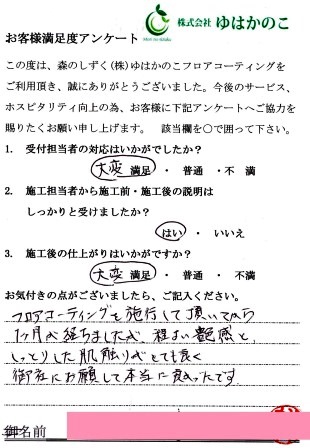 株式会社 ゆはかのこ
Mori no sizuku
お客様満足度アンケート
この度は、森のしずく(株)ゆはかのこフロアコーティングを
ご利用頂き、誠にありがとうございました。今後のサービス、
ホスピタリティ向上の為、お客様に下記アンケートへご協力を
賜りたくお願い申し上げます。 該当欄を○で囲って下さい。
1. 受付担当者の対応はいかがでしたか?
大変 満足 ・ 普通 ・不 満
2. 施工担当者から施工前・施工後の説明は
しっかりと受けましたか?
はい ・ いいえ
3. 施工後の仕上がりはいかがですか?
大変 満足 ・ 普通 ・ 不満
お気付きの点がございましたら、ご記入ください。
フロアコーティングを施行して頂いてから
1ヶ月が経ちましたが、程よい艶感と、
しっとりした肌触りがとても良く
御社にお願して本当に良かったです。
御名前